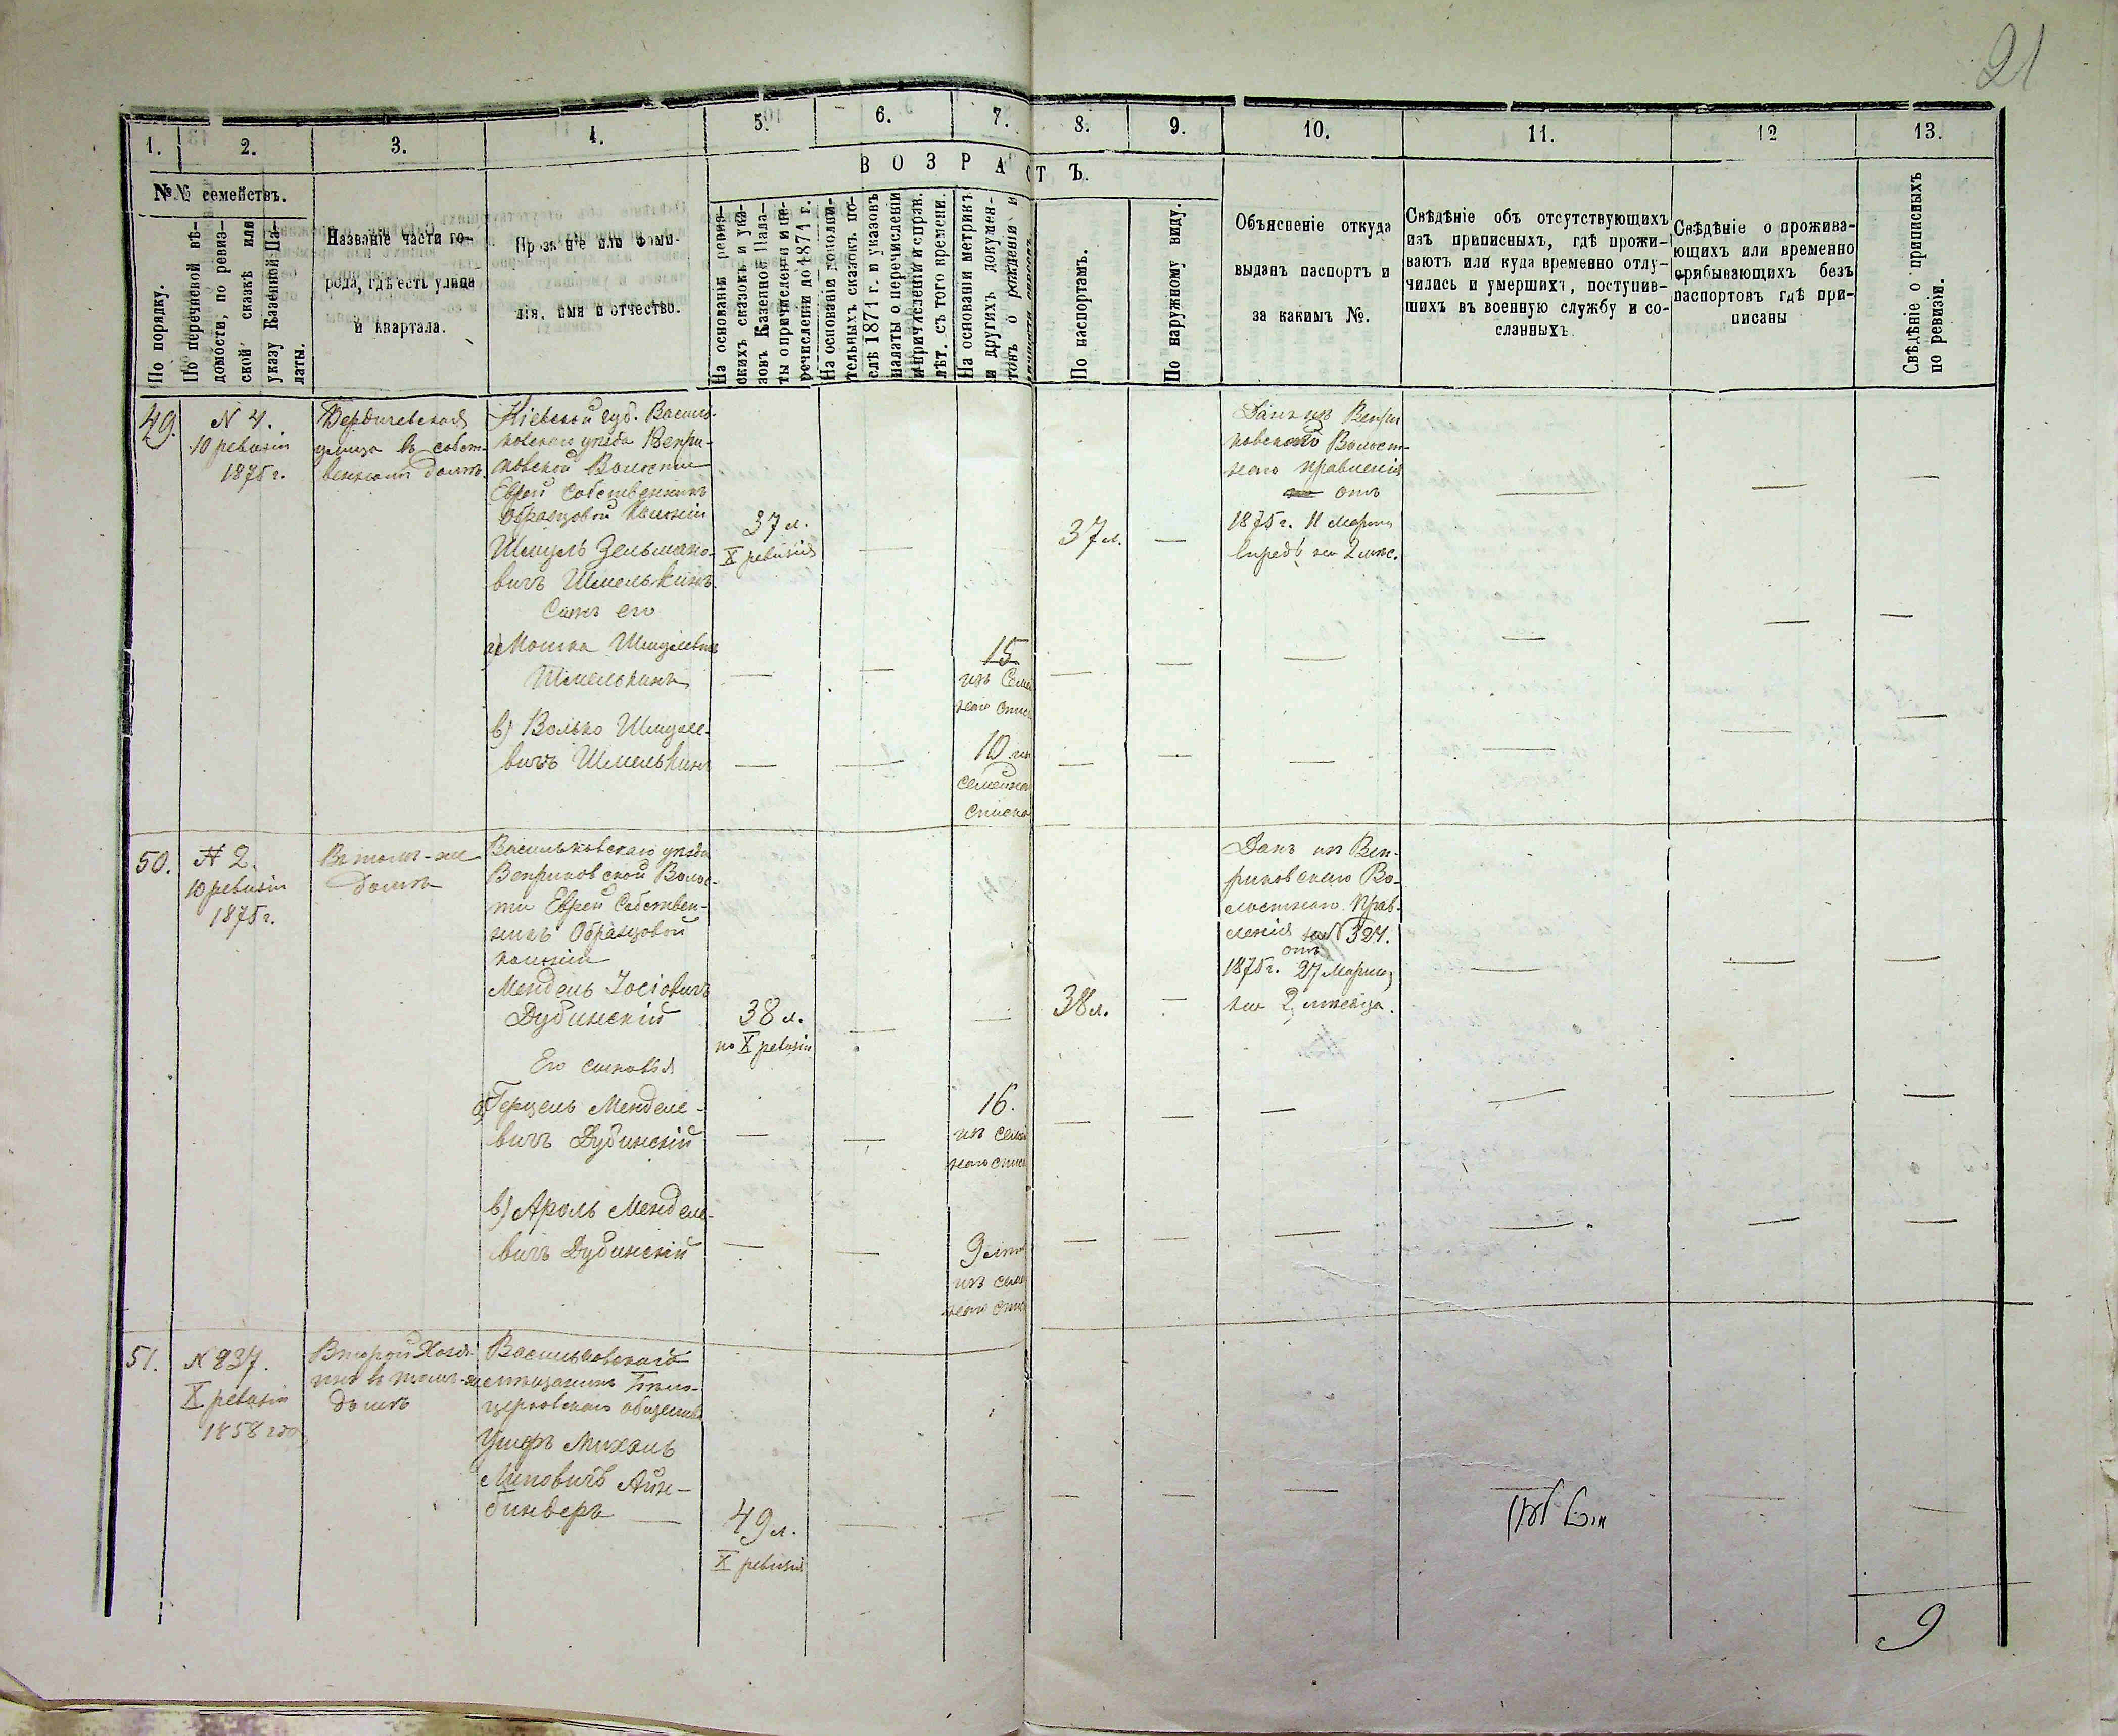 21
1.
2.
3.
4.
5.
6.
7.
8.
9.
10.
11.
12
13.
№№ семействъ.
В О З Р А С Т Ъ.
По порядку.
По перечневой вѣ-
домости, по ревиз-
ской сказкѣ или
указу Казенной Па-
латы.
Названіе части го-
рода, гдѣ есть улица
и квартала.
Прозваніе или фами-
лія, имя и отчество.
На основаніи ревиз-
скихъ сказокъ и ука-
зовъ Казенной Пала-
ты о причисленіи и пе-
речисленіи до 1871 г.
На основаніи дополни-
тельныхъ сказокъ по-
слѣ 1871 г. и указовъ
палаты о перечисленіи
и причисленіи и справ.
лѣт. съ того времени.
На основаніи метрикъ
и другихъ докумен-
товъ о рожденіи и
По паспортамъ.
По наружному виду.
Объясненіе откуда
выданъ паспортъ и
за какимъ №.
Свѣдѣніе объ отсутствующихъ
изъ приписныхъ, гдѣ прожи-
ваютъ или куда временно отлу-
чились и умершихъ, поступив-
шихъ въ военную службу и со-
сланныхъ.
Свѣдѣніе о прожива-
ющихъ или временно
прибывающихъ безъ
паспортовъ гдѣ при-
писаны
Свѣдѣніе о приписныхъ
по ревизіи.
49.
N 4.
10 ревизіи
1875 г.
Бердичевская
улица въ собст-
венномъ домѣ.
Кіевской губ. Василь-
ковскаго уѣзда Вепри-
ковской Волости
Еврей Собственникъ
Образцовой Колоніи
Шмуль Зельмано-
вичъ Шмелькинъ
Сынъ его
а) Мошка Шмулевичъ
Шмелькинъ
в) Волько Шмуле-
вичъ Шмелькинъ
37 л.
X ревизія
15
изъ Семей
наго спис
10 изъ
семейнаго
списка
37 л.
Данъ изъ Вепри
ковскаго Волост-
наго правленія
отъ
1875 г. 11 Марта
впредь на 2 мѣс.
50.
№ 2.
10 ревизіи
1875 г.
Въ томъ-же
домѣ
Васильковскаго уѣзда
Веприковской Волос-
ти Еврей Собствен-
никъ Образцовой
колоніи
Мендель Іосіовичъ
Дубинскій
Его сыновья
а) Герцель Менделе-
вичъ Дубинскій
в) Ароль Менделе-
вичъ Дубинскій
38 л.
по X ревизіи
16.
изъ семей
наго спис
9 лѣтъ
изъ семей
наго спис
38 л.
Данъ изъ Веп-
риковскаго Во-
лостнаго Прав-
ленія за № 324.
отъ
1875 г. 27 Марта
на 2 мѣсяца.
51.
N 837.
X ревизіи
1858 года
Второй Хозя-
инъ въ томъ-же
домѣ
Васильковскаго
мѣщанинъ Бѣло-
церковскаго общества
Ушеръ Михаль
Липовичъ Айн-
бинберъ
49 л.
X ревизія
9